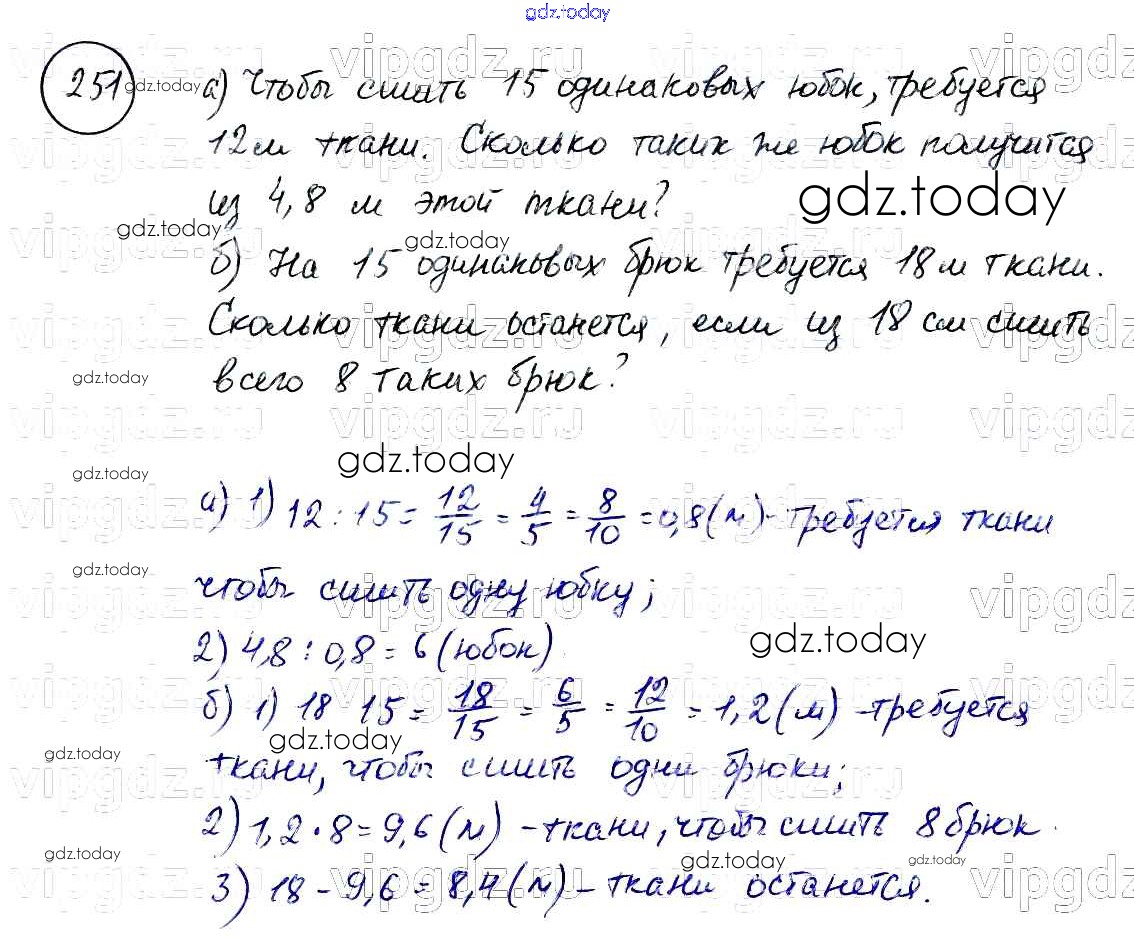 gdz.today
251 а) Чтобы сшить 15 одинаковых юбок, требуется
12 м ткани. Сколько таких же юбок получится
из 4,8 м этой ткани?
б) На 15 одинаковых брюк требуется 18 м ткани.
Сколько ткани останется, если из 18 см сшить
всего 8 таких брюк?
а) 1) 12 : 15 = 12/15 = 4/5 = 8/10 = 0,8 (м) - требуется ткани
чтобы сшить одну юбку;
2) 4,8 : 0,8 = 6 (юбок)
б) 1) 18 15 = 18/15 = 6/5 = 12/10 = 1,2 (м) - требуется
ткани, чтобы сшить одни брюки;
2) 1,2 · 8 = 9,6 (м) - ткани, чтобы сшить 8 брюк.
3) 18 - 9,6 = 8,4 (м) - ткани останется.